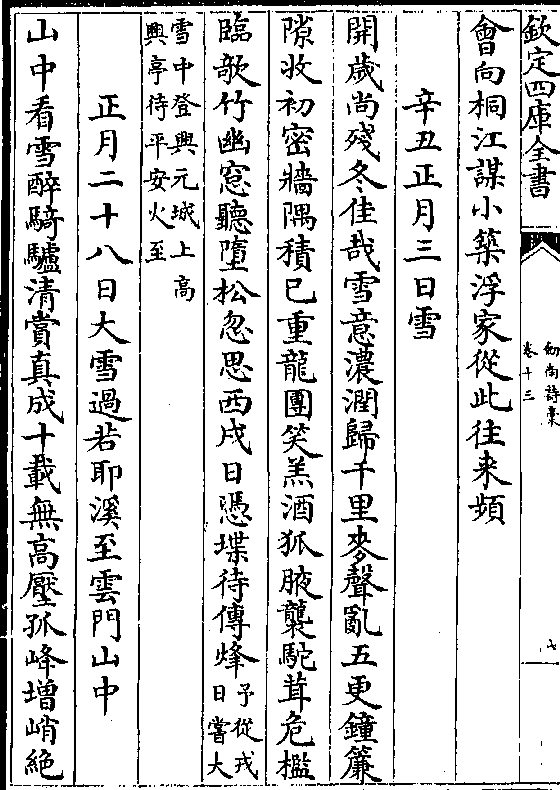 欽定四庫全書
劍南詩稾
卷十三
七
會向桐江謀小築浮家從此往来頻
辛丑正月三日雪
開歲尚殘冬佳哉雪意濃潤歸千里麥聲亂五更鐘簾
隙收初密牆隅積已重龍團笑羔酒狐腋襲駝茸危檻
臨欹竹幽窓聽墮松忽思西戍日憑堞待傳烽
予從戎
日嘗大
雪中登興元城上高
興亭待平安火至
正月二十八日大雪過若耶溪至雲門山中
山中看雪醉騎驢清賞真成十載無高壓孤峰增峭絶